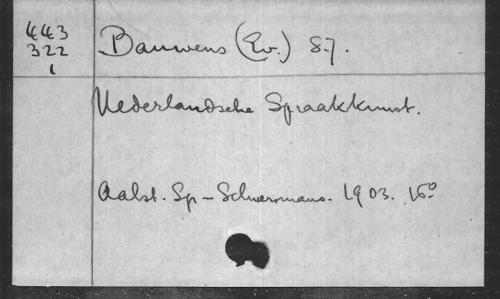 443
322
1
Bauwens (Ev.) S.J.
Nederlandsche Spraakkunst.
Aalst. Sp-Schuermans. 1903. 16°